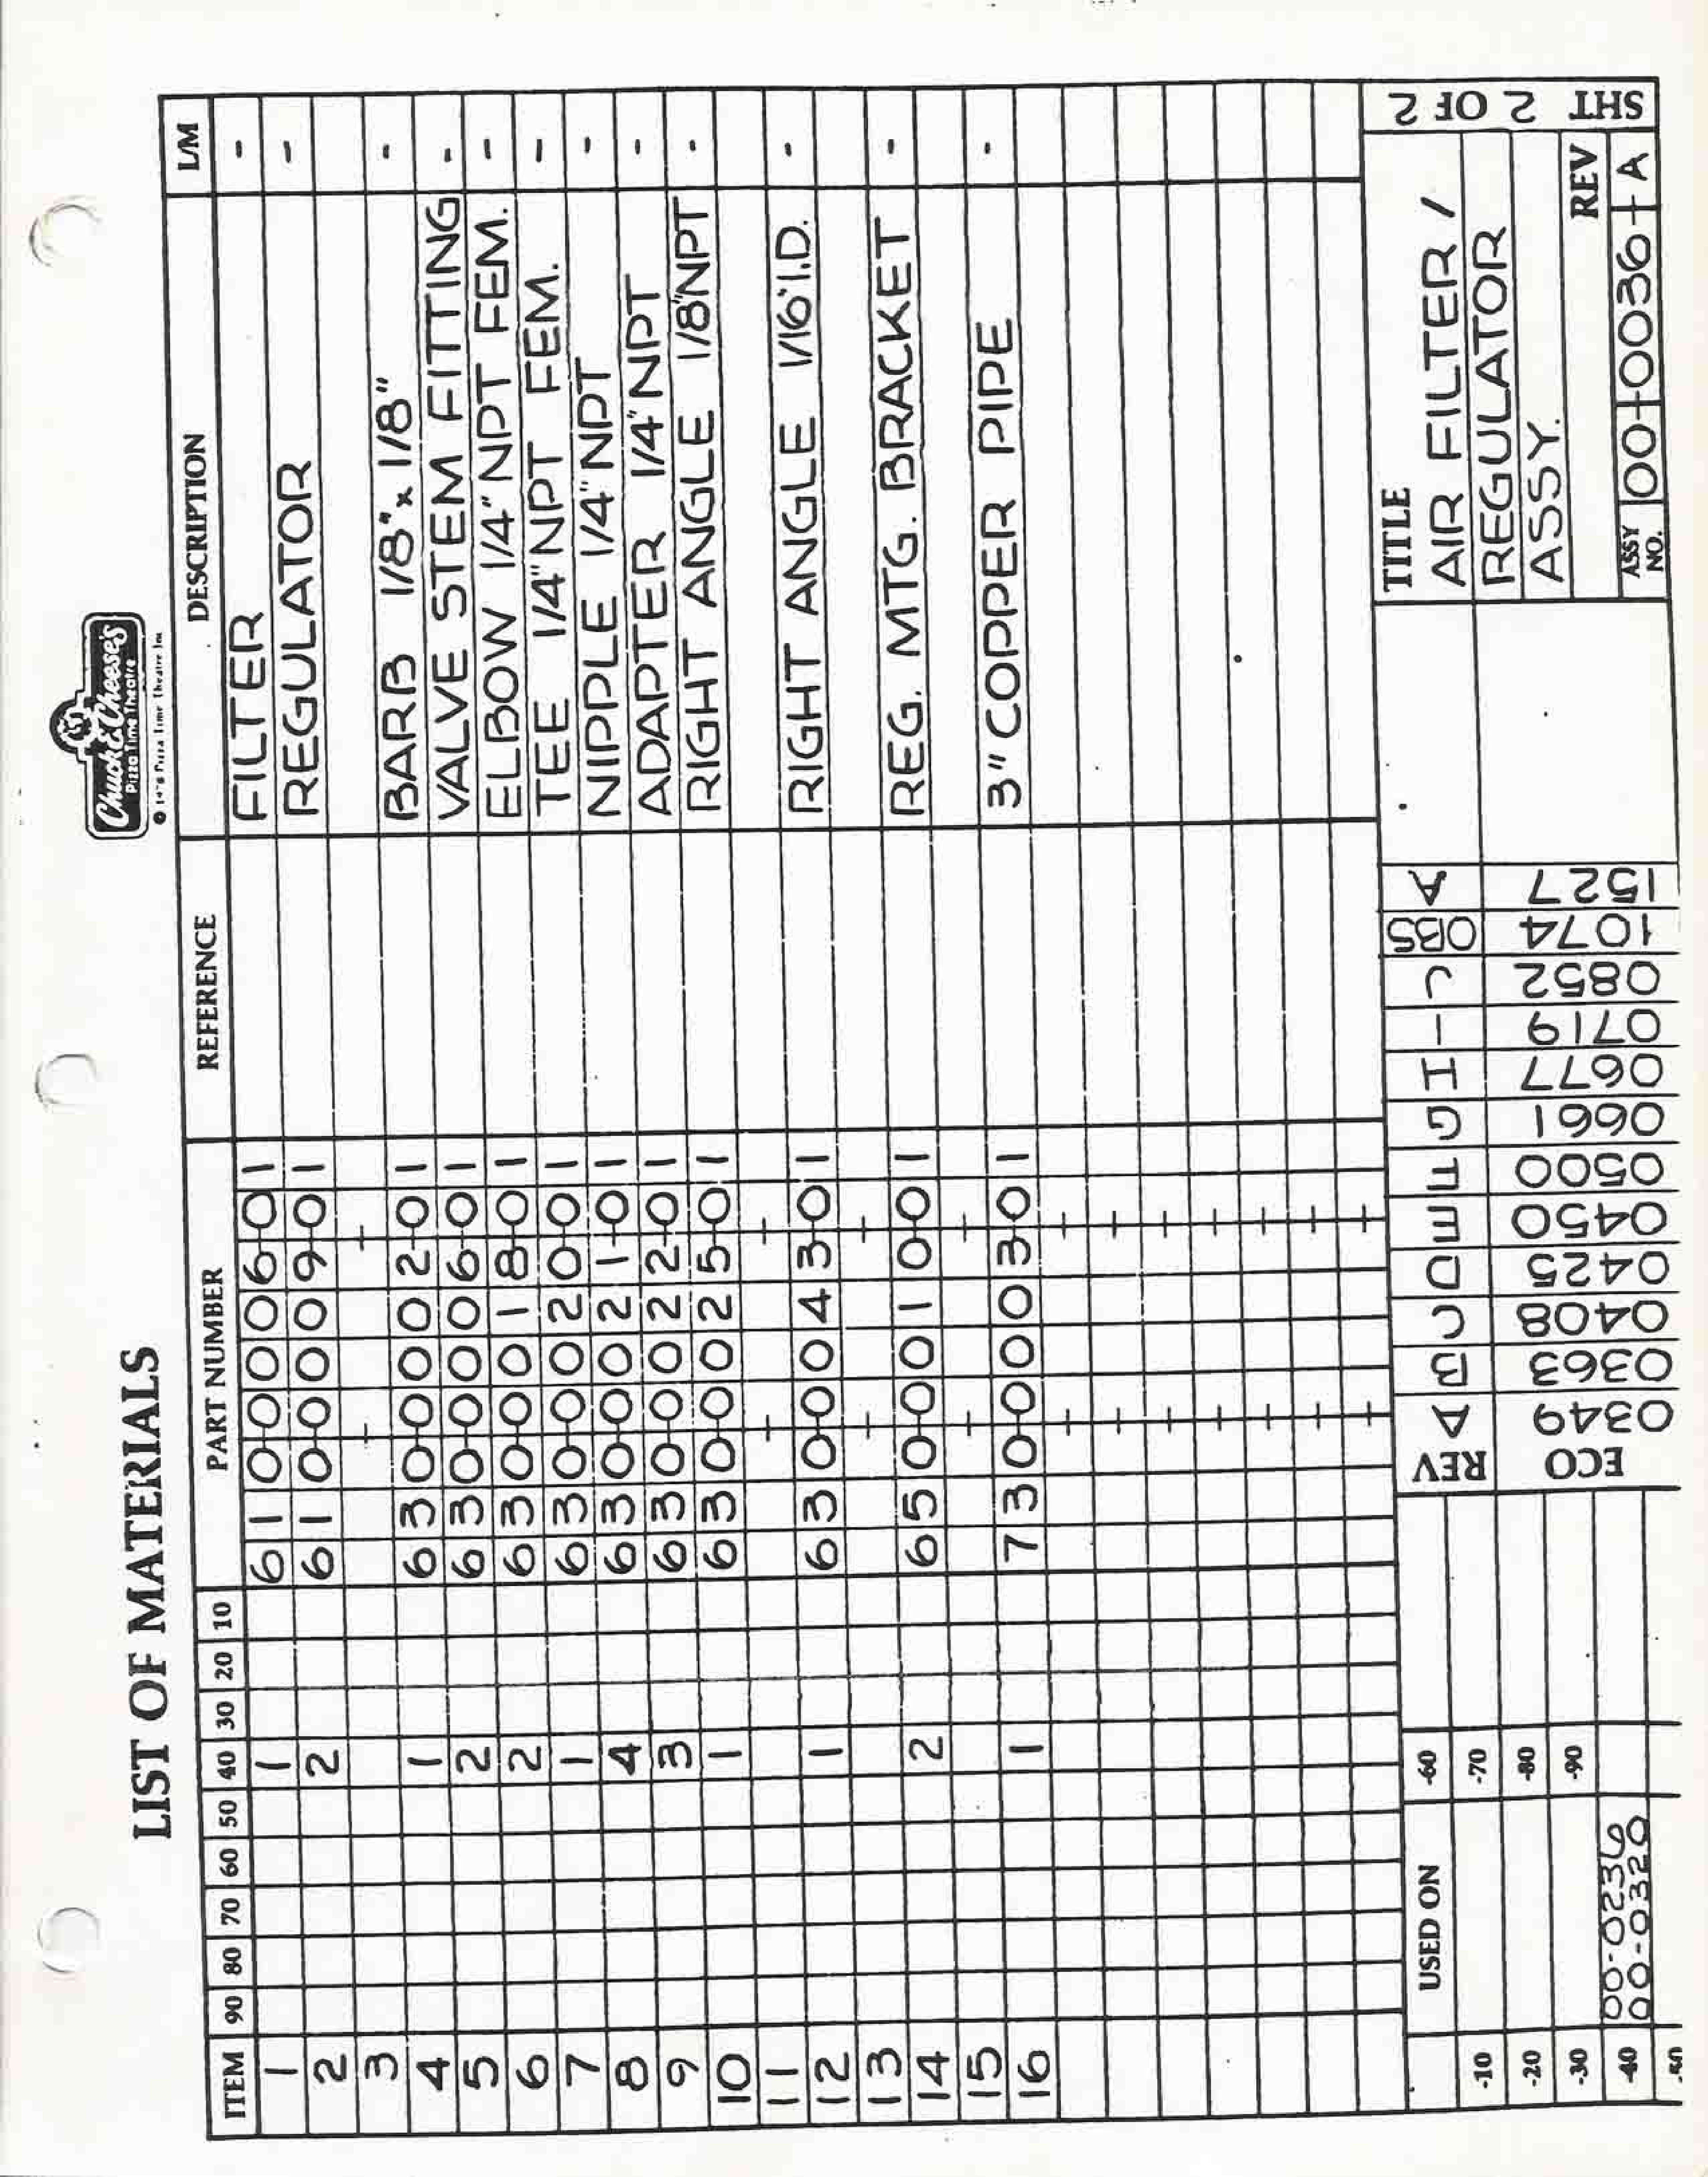 LIST OF MATERIALS
Chuck E. Cheese's
Pizza Time Theatre
© 1978 Pizza Time Theatre Inc
ITEM 90 80 70 60 50 40 30 20 10 PART NUMBER REFERENCE DESCRIPTION L/M
1 1 610-0006-01 FILTER -
2 2 610-0009-01 REGULATOR -
3
4 1 630-0002-01 BARB 1/8" x 1/8" -
5 2 630-0006-01 VALVE STEM FITTING -
6 2 630-0018-01 ELBOW 1/4" NPT FEM. -
7 1 630-0020-01 TEE 1/4" NPT FEM. -
8 4 630-0021-01 NIPPLE 1/4" NPT -
9 3 630-0022-01 ADAPTER 1/4" NPT -
10 1 630-0025-01 RIGHT ANGLE 1/8" NPT -
11
12 1 630-0043-01 RIGHT ANGLE 1/16" I.D. -
13
14 2 650-0010-01 REG. MTG. BRACKET -
15
16 1 730-0003-01 3" COPPER PIPE -
USED ON
-10
-20
-30
-40 00-0236
00-0320
-50
-60
-70
-80
-90
REV A B C D E F G H I J OBS A
ECO 0349 0363 0408 0425 0450 0500 0661 0677 0719 0852 1074 1527
TITLE
AIR FILTER /
REGULATOR
ASSY.
REV
ASSY NO. 00-0036- A
SHT 2 OF 2